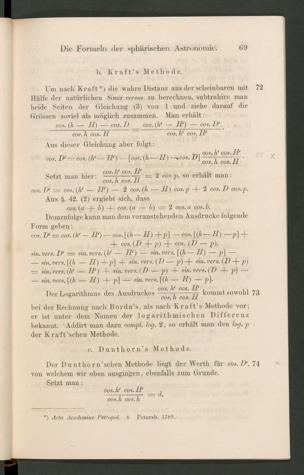 Die Formeln der sphärischen Astronomie. 69
b. Kraft's Methode.
Um nach Kraft*) die wahre Distanz aus der scheinbaren mit 72
Hülfe der natürlichen Sinus versus zu berechnen, subtrahire man
beide Seiten der Gleichung (3) von 1 und ziehe darauf die
Grössen soviel als möglich zusammen. Man erhält:
cos. (h — H) — cos. D / cos. h cos. H = cos. (h' — H') — cos. D' / cos. h' cos. H'
Aus dieser Gleichung aber folgt:
cos. D' = cos. (h' — H') — [cos. (h — H) — cos. D] cos. h' cos. H' / cos. h cos. H
Setzt man hier: cos. h' cos. H' / cos. h cos. H = 2 cos. p, so erhält man:
cos. D' = cos. (h' — H') — 2 cos. (h — H) cos. p + 2 cos. D cos. p.
Aus §. 42. (2) ergiebt sich, dass
cos. (a + b) + cos. (a — b) = 2 cos. a cos. b.
Demzufolge kann man dem voranstehenden Ausdrucke folgende
Form geben:
cos. D' = cos. (h' — H') — cos. [(h — H) + p] — cos. [(h — H) — p] +
+ cos. (D + p) + cos. (D — p),
sin. vers. D' = sin. vers. (h' — H') — sin. vers. [(h — H) — p] —
— sin. vers. [(h — H) + p] + sin. vers. (D — p) + sin. vers. (D + p)
= sin. vers. (h' — H') + sin. vers. (D — p) + sin. vers. (D + p) —
— sin. vers. [(h — H) + p] — sin. vers. [(h — H) — p].
Der Logarithmus des Ausdruckes cos. h' cos. H' / cos. h cos. H kommt sowohl 73
bei der Rechnung nach Borda's, als nach Kraft's Methode vor;
er ist unter dem Namen der logarithmischen Differenz
bekannt. Addirt man dazu compl. log. 2, so erhält man den log. p
der Kraft'schen Methode.
c. Dunthorn's Methode.
Der Dunthorn'schen Methode liegt der Werth für cos. D', 74
von welchem wir oben ausgingen, ebenfalls zum Grunde.
Setzt man:
cos. h' cos. H' / cos. h cos. h = d,
*) Acta Academiae Petropol. Petersb. 1789.